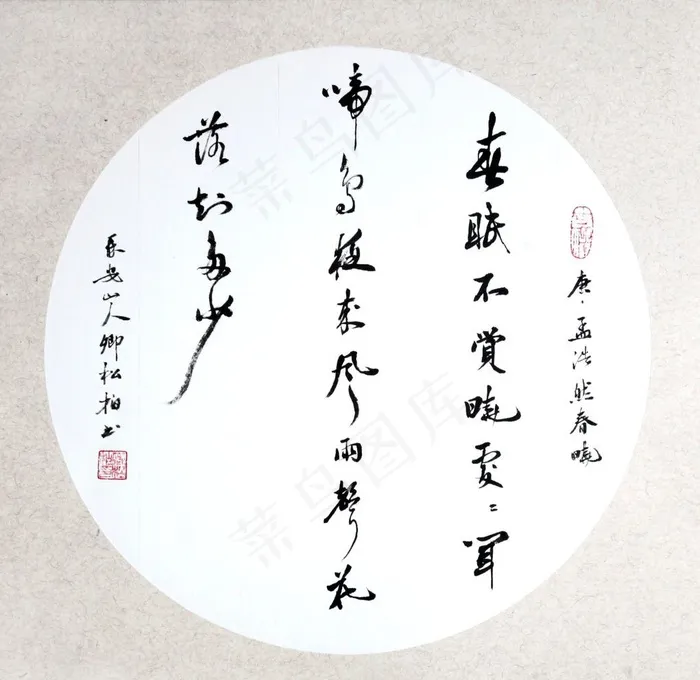 唐·孟浩然春曉
春眠不覺曉處々聞
啼鳥夜來風雨聲花
落知多少
安山人卿松柏书
菜鸟图库
菜鸟图库